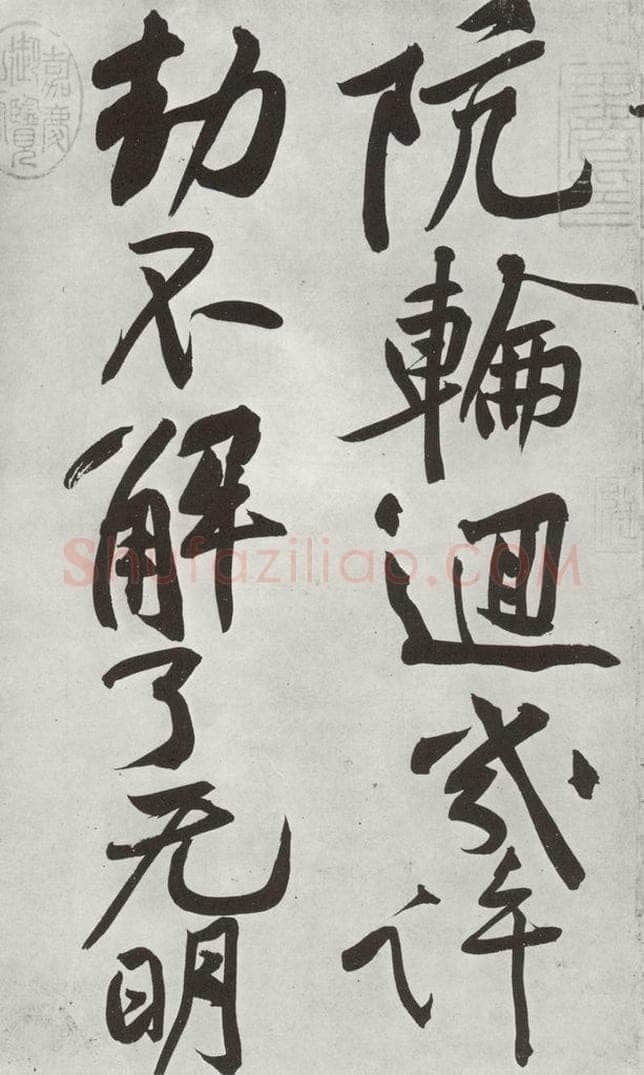 阬輪迴幾許
劫不解了无明
嘉慶
御覽
Shufaziliao.COM